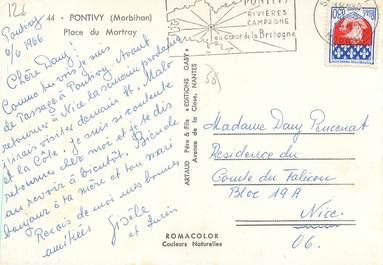 126
44 - PONTIVY (Morbihan)
Place du Martray
Pontivy
6/6 1966
Chère Dany
Comme tu vois je suis
de passage à Pontivy. Avant
retourner à Nice la semaine prochaine
irais visite demain St. Malo
et la Côte. Je suis si contente
retourner chez moi et je te dis
au revoir à bientôt. Bien le
bonjour à ta mère et ton mari
Reçois de moi mes bonnes
amitiés Gisèle
et Lucien
ARTAUD Père & Fils "EDITIONS GABY"
Avenue de la Close, NANTES
ROMACOLOR
Couleurs Naturelles
PONTIVY
RIVIÈRES
CAMPAGNE
au cœur de la Bretagne
0,30
Madame Dany Pencenat
Residence du
Comte de Falicon
Bloc 19A
Nice
06.